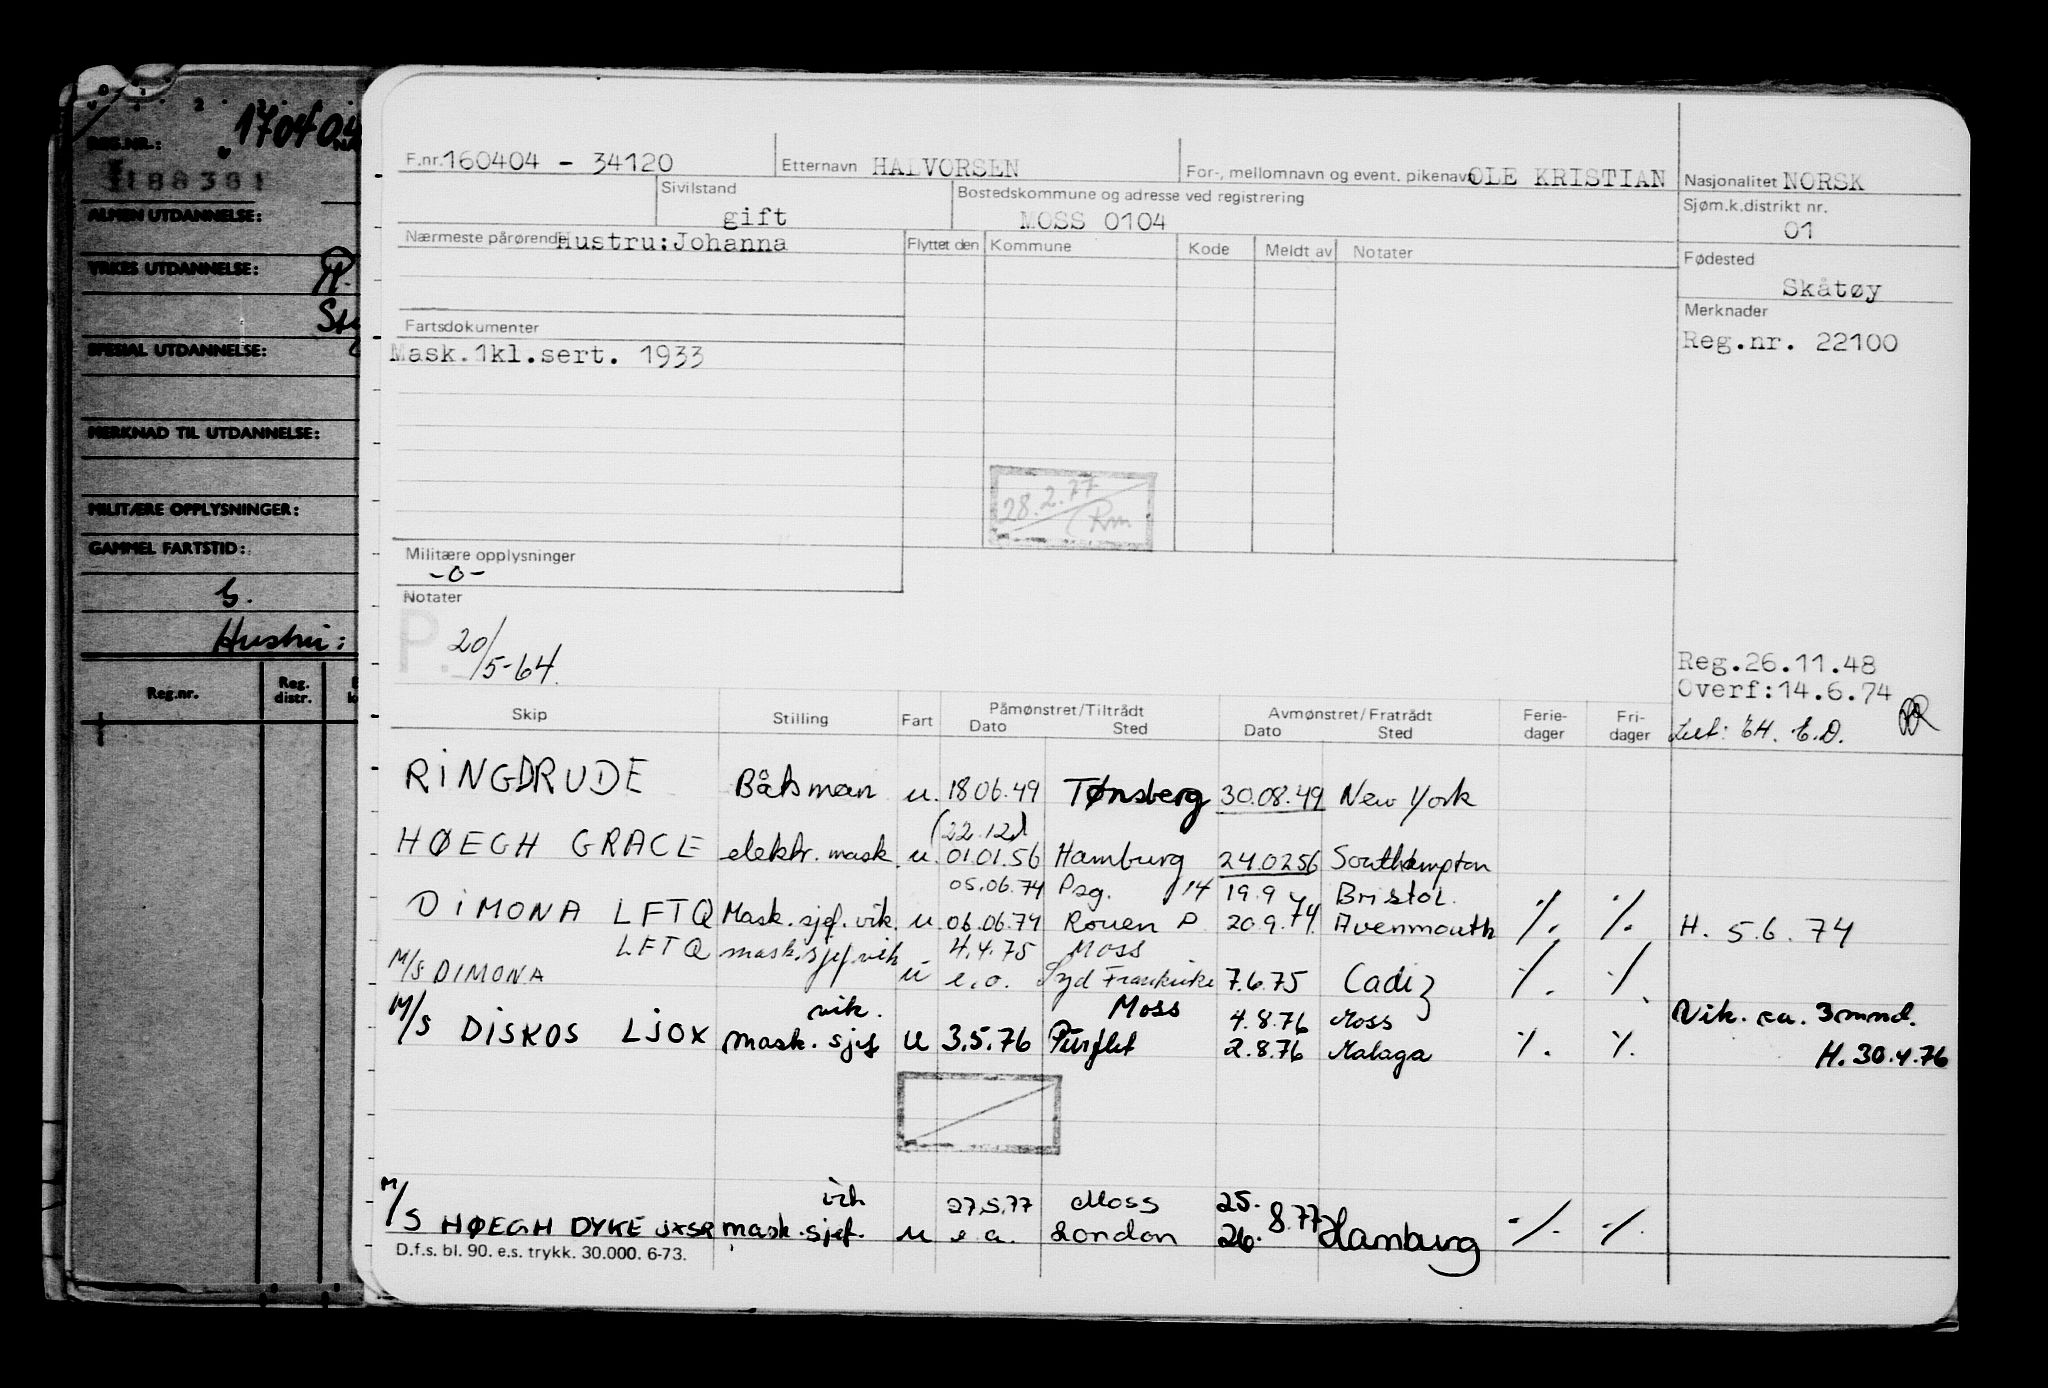 170404
REG.NR.:
188381
ALMEN UTDANNELSE:
YRKES UTDANNELSE:
SPESIAL UTDANNELSE:
MERKNAD TIL UTDANNELSE:
MILITÆRE OPPLYSNINGER:
GAMMEL FARTSTID:
Hustru:
Reg.nr. Reg. distr.
F.nr. 160404 - 34120 Etternavn HALVORSEN For-, mellomnavn og event. pikenavn OLE KRISTIAN Nasjonalitet NORSK
Sivilstand gift Bostedskommune og adresse ved registrering MOSS 0104 Sjøm.k.distrikt nr. 01
Nærmeste pårørende Hustru:Johanna Flyttet den Kommune Kode Meldt av Notater Fødested
Skåtøy
Merknader
Reg.nr. 22100
Fartsdokumenter
Mask.1kl.sert. 1933
28.2.77
Rm
Militære opplysninger
-0-
Notater
P. 20/5-64.
Reg.26.11.48
Overf:14.6.74
Skip Stilling Fart Påmønstret/Tiltrådt Dato Sted Avmønstret/Fratrådt Dato Sted Ferie-dager Fri-dager
RINGDRUDE Båtsman u. 18.06.49 Tønsberg 30.08.49 New York
(22.12)
HØEGH GRACE elektr. mask. u. 01.01.56 Hamburg 24.02.56 Southampton
05.06.74 Psg. 14 19.9 Bristol.
DIMONA LFTQ Mask.sjef.vik. u 06.06.74 Rouen P. 20.9.74 Avenmouth -/. -/. H. 5.6.74
LFTQ mask.sjef.vik 4.4.75 Moss
M/S DIMONA u e.o. Syd Frankrike 7.6.75 Cadiz -/. -/.
vik. Moss 4.8.76 Moss Vik. ca. 3 mnd.
M/S DISKOS LJOX mask. sjef u 3.5.76 Purflet 2.8.76 Malaga -/. -/. H. 30.4.76
vik 27.5.77 Moss 25.
M/S HØEGH DYKE JXSR mask.sjef. u e.a. London 26.8.77 Hamburg -/. -/.
D.f.s. bl. 90. e.s. trykk. 30.000. 6-73.